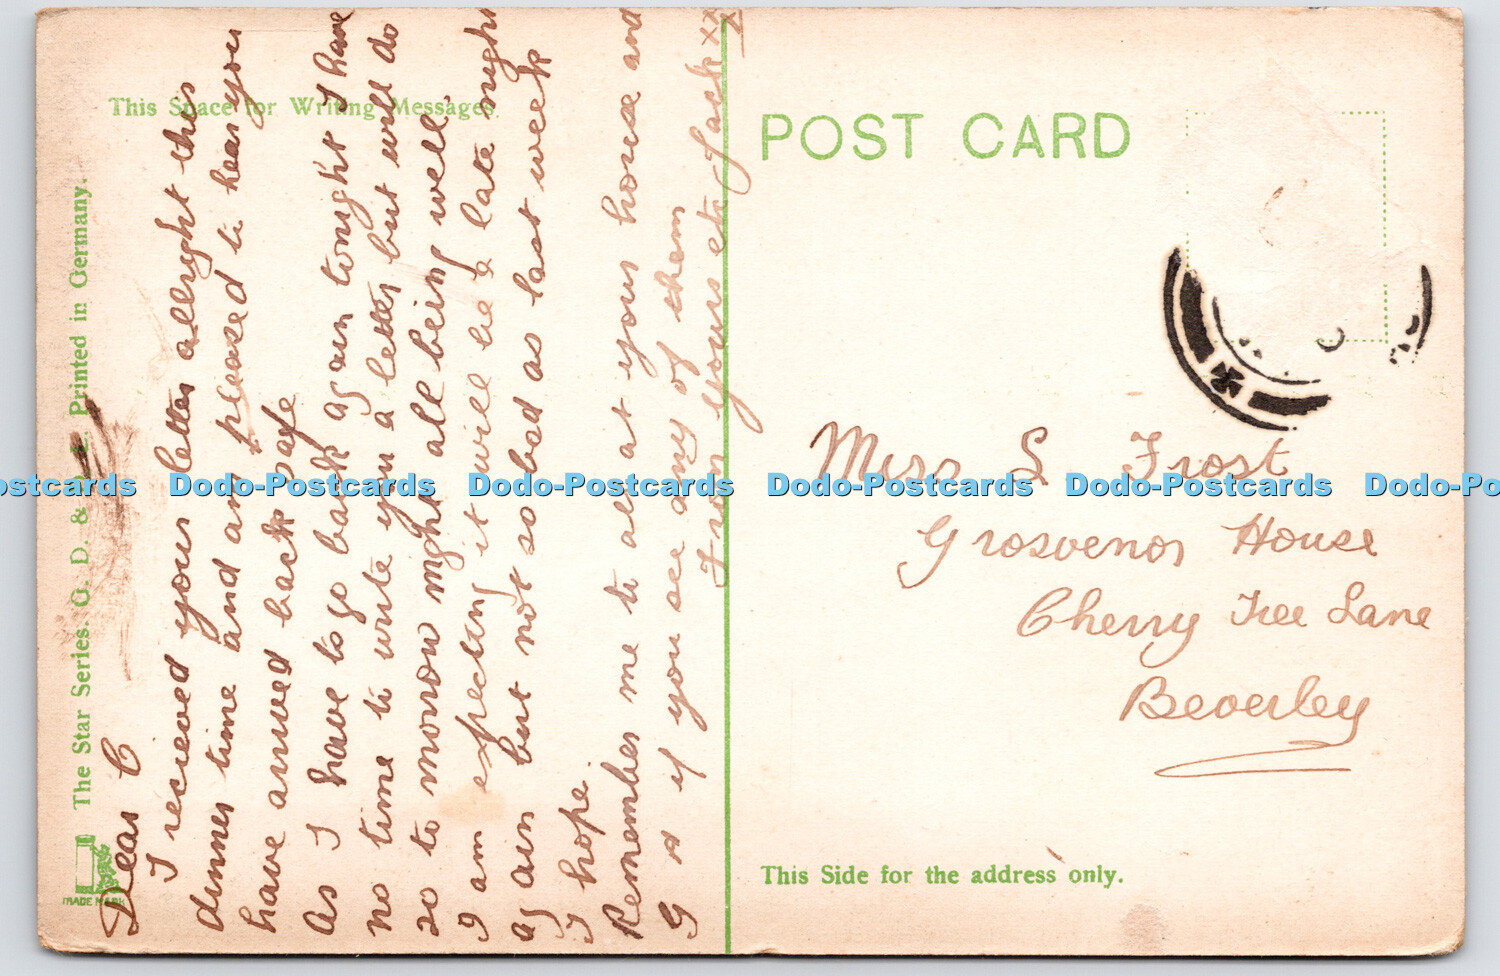 This Space for Writing Messages.
The Star Series. G. D. & D. L. Printed in Germany.
TRADE MARK
Dear C
I recieved your letter allright this
dinner time and am pleased to hear you
have arrived back safe
As I have to go back again tonight I have
no time to write you a letter but will do
so to morrow night all being well.
I am expecting it will be a late night
again but not so bad as last week
I hope.
Remember me to all at your house and
G s if you see any of them
From Yours etc Jack xx
x
POST CARD
Miss S Frost
Grosvenor House
Cherry Tree Lane
Beverley
This Side for the address only.
Dodo-Postcards Dodo-Postcards Dodo-Postcards Dodo-Postcards